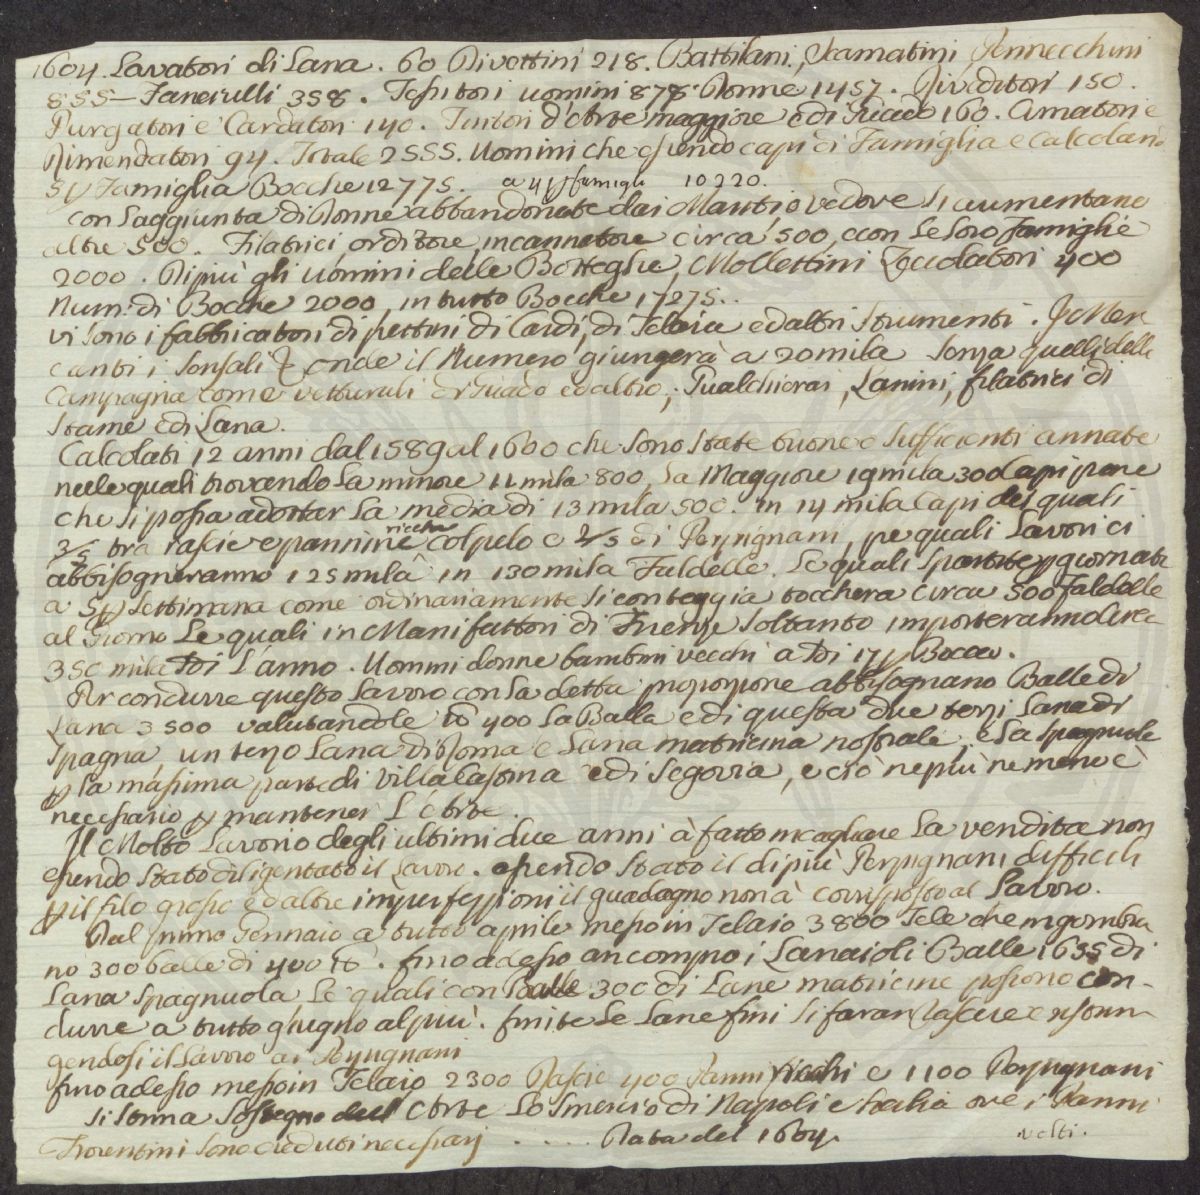 1604. Lavatori di Lana. 60 Divettini 218. Battilani, Scamatini Pennecchini
855 — Fanciulli 358. Tessitori uomini 878. Donne 1457. Riveditori 150.
Purgatori e Cardatori 140. Tintori d'Arte maggiore e di Guado 160. Amatori e
Rimendatori 94. Totale 2555. Uomini che essendo capi di Famiglia e calcolano
5 p Famiglia Bocche 12775. a 4 p famigli 10220.
con l'aggiunta di Donne abbandonate dai Mariti o vedove si aumentano
altre 500. Filatrici, orditore, incannatore circa 500, e con le loro famiglie
2000. Di più gli uomini delle Botteghe, Mollettini 400
Num. di Bocche 2000, in tutto Bocche 17275.
vi sono i fabbricatori di pettini di Cardi, di Telaia ed altri strumenti. I Mer
canti i Sensali & onde il Numero giungerà a 20 mila senza quelli delle
Campagna come vetturali di Guado ed altro, Gualchierai, Lanini, filatrici di
stame e di Lana.
Calcolati 12 anni dal 1589 al 1600 che sono state buone e sufficienti annate
nelle quali trovando la minore 11 mila 800, la Maggiore 19 mila 300 Capi pare
che si possa adottar la media di 13 mila 500. in 14 mila Capi dei quali
3/5 tra rascie e pannine ricche col pelo e 2/5 di Perpignani, pe quali Lavori ci
abbisogneranno 125 mila in 130 mila Faldelle. Le quali spartite p giornate
a 5 p settimana come ordinariamente si conteggia toccherà circa 500 Faldelle
al Giorno Le quali in Manifattori di Firenze soltanto importeranno circa
350 mila l'anno. Uomini donne bambini vecchi a 17 p Bocca.
Per condurre questo lavoro con la detta proporzione abbisognano Balle di
Lana 3500 valutandole 400 la Balla e di questa due terzi Lana di
Spagna, un terzo Lana di Roma e Lana matricina nostrale, e la spagnuole
p la massima parte di Villa Casona e di Segovia, e ciò ne più ne meno è
necessario p mantener l'Arte.
Il Molto Lavorio degli ultimi due anni à fatto incagliare la vendita non
essendo stato diligentato il Lavoro. essendo stato il di più Perpignani difficili
p il filo grosso ed altre imperfezzioni il guadagno non à corrisposto al Lavoro.
Dal primo Gennaio a tutto aprile messo in Telaio 3800 Tele che ingombra
no 300 balle di 400 lb. fino adesso an compro i Lanaioli Balle 1655 di
Lana Spagnuola le quali con Balle 300 di Lane matricine possono con-
durre a tutto giugno al più. finite le lane fini si faran Rascie e ristrin
gendosi il Lavoro ai Perpignani
fino adesso messo in Telaio 2300 Rascie 400 Panni ricchi e 1100 Perpignani
si stima sostegno dell Arte lo smercio di Napoli e Italia ove i Panni
Fiorentini sono creduti necessarj ..... Data del 1604. volti.